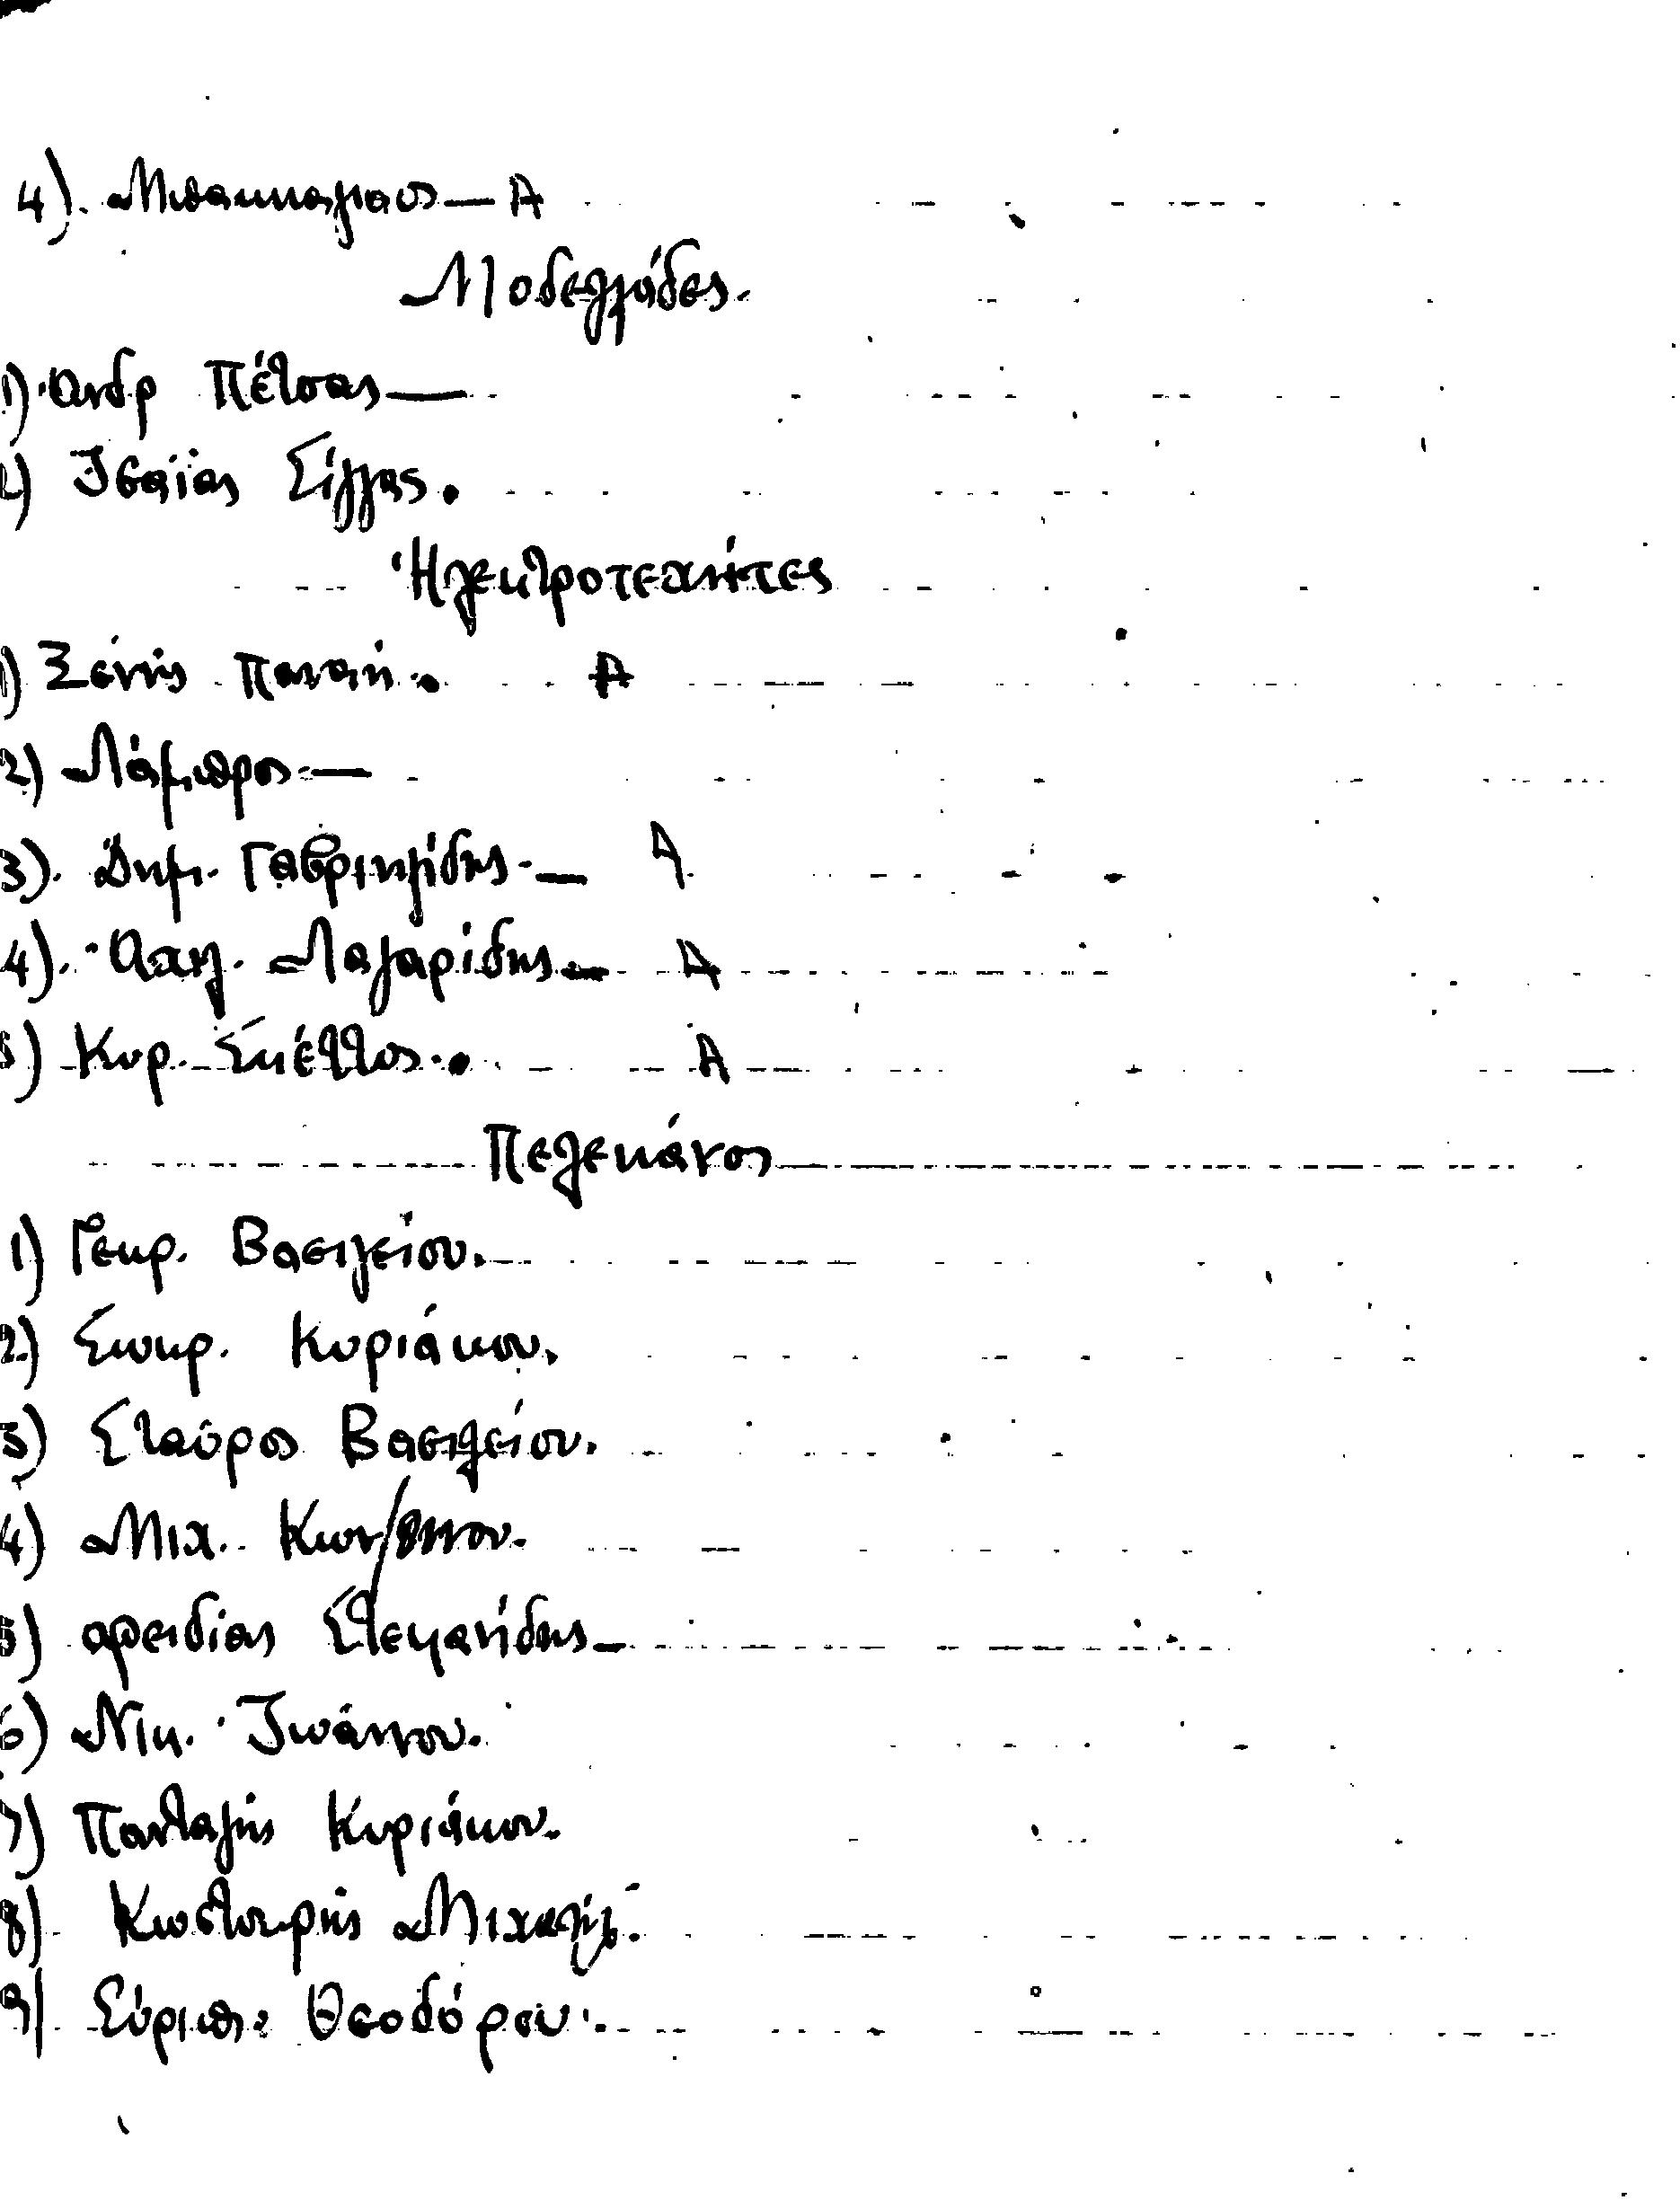 4). Μπακκαλιαος — Α
Μοδελλάδες.
1) Ἀνδρ Πέτσας —
2) Ἰσαΐας Σίγγας.
Ἠλεκτροτεχνίτες
1) Ξένης Παναή. Α
2) Λάμπρος —
3). Δημ. Γαβριηλίδης. — Α
4). Ἀχιλ. Λαζαρίδης — Α
5) Κυρ. Σκέττος.. Α
Πελεκάνος
1) Γεωρ. Βασιλείου.
2) Σωκρ. Κυριάκου.
3) Σταύρος Βασιλείου.
4) Μιχ. Κων/τίνου.
5) Φειδίας Στεφανίδης —
6) Νικ. Ἰωάννου.
7) Πανταλής Κυριάκου.
8) Κωστουρής Μιχαήλ.
9) Εὐριπ. Θεοδόρου.